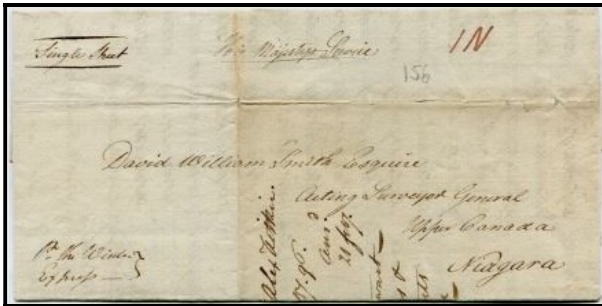 Single Sheet
His Majestys Service
1N
156
David William Smith Esquire
Acting Surveyor General
Upper Canada
Niagara
Pr. the Winter
Express
Alex Aitkin.
97.96.
Ansd